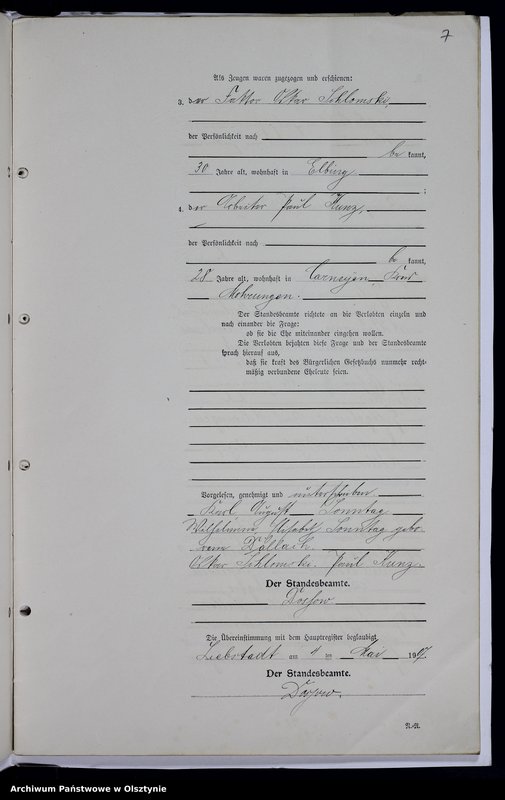 7
Als Zeugen waren zugezogen und erschienen:
3. der Faktor Oskar Schlomski,
der Persönlichkeit nach
be kannt,
30 Jahre alt, wohnhaft in Elbing
;
4. der Arbeiter Paul Kunz,
der Persönlichkeit nach
be kannt,
28 Jahre alt, wohnhaft in Carneyen, Kreis
Mohrungen.
Der Standesbeamte richtete an die Verlobten einzeln und
nach einander die Frage:
ob sie die Ehe miteinander eingehen wollen.
Die Verlobten bejahten diese Frage und der Standesbeamte
sprach hierauf aus,
daß sie kraft des Bürgerlichen Gesetzbuchs nunmehr recht-
mäßig verbundene Eheleute seien.
Vorgelesen, genehmigt und unterschrieben
Karl August Sonntag
Sonntag gebo-
rene
Oskar Schlomski. Paul Kunz.
Der Standesbeamte.
Die Übereinstimmung mit dem Hauptregister beglaubigt
Liebstadt am 4 ten Mai 19
Der Standesbeamte.
N.-N.
Archiwum Państwowe w Olsztynie